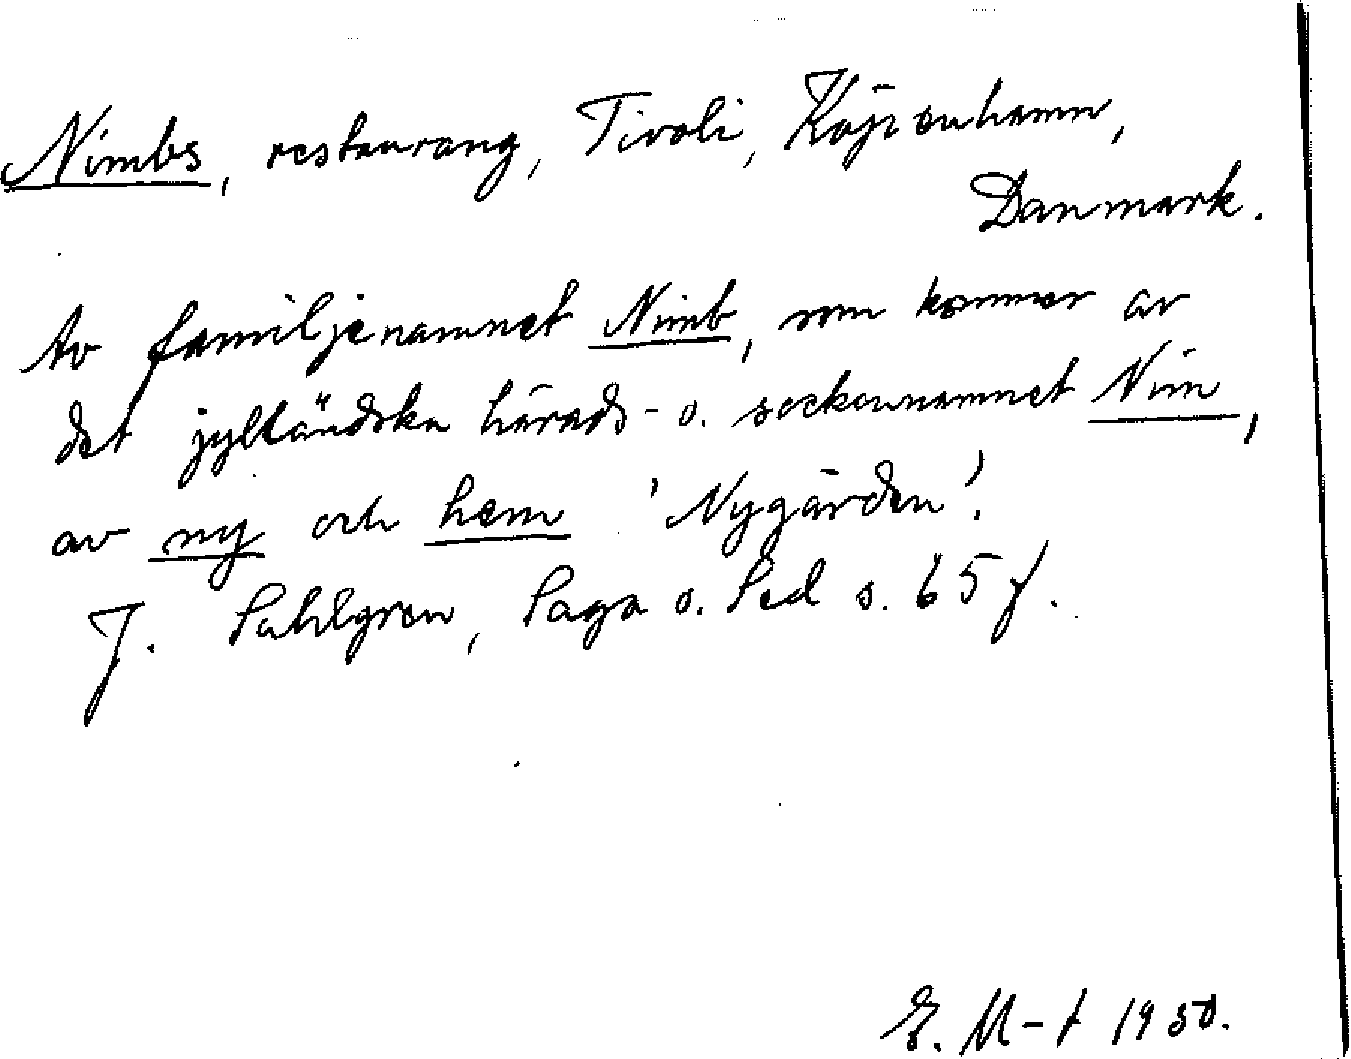 Nimbs, restaurang, Tivoli, Köpenhamn,
Danmark.
Av familjenamnet Nimb, som kommer av
det jylländska härads- o. sockennamnet Nim,
av ny och hem 'Nygården'.
J. Sahlgren, Saga o. Sed s. 65 f.
E. M-t 1950.